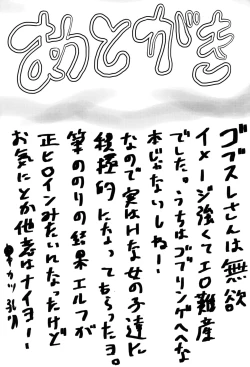 あとがき
ゴブスレさんは無欲
イメージ強くてエロ難産
でした。うちはゴブリンゲヘヘな
本じゃないしねー！
なので実はHな女の子達に
積極的になってもらったヨ。
筆ののりの結果エルフが
正ヒロインみたいんなったけど
お気にとか他意はナイヨー！